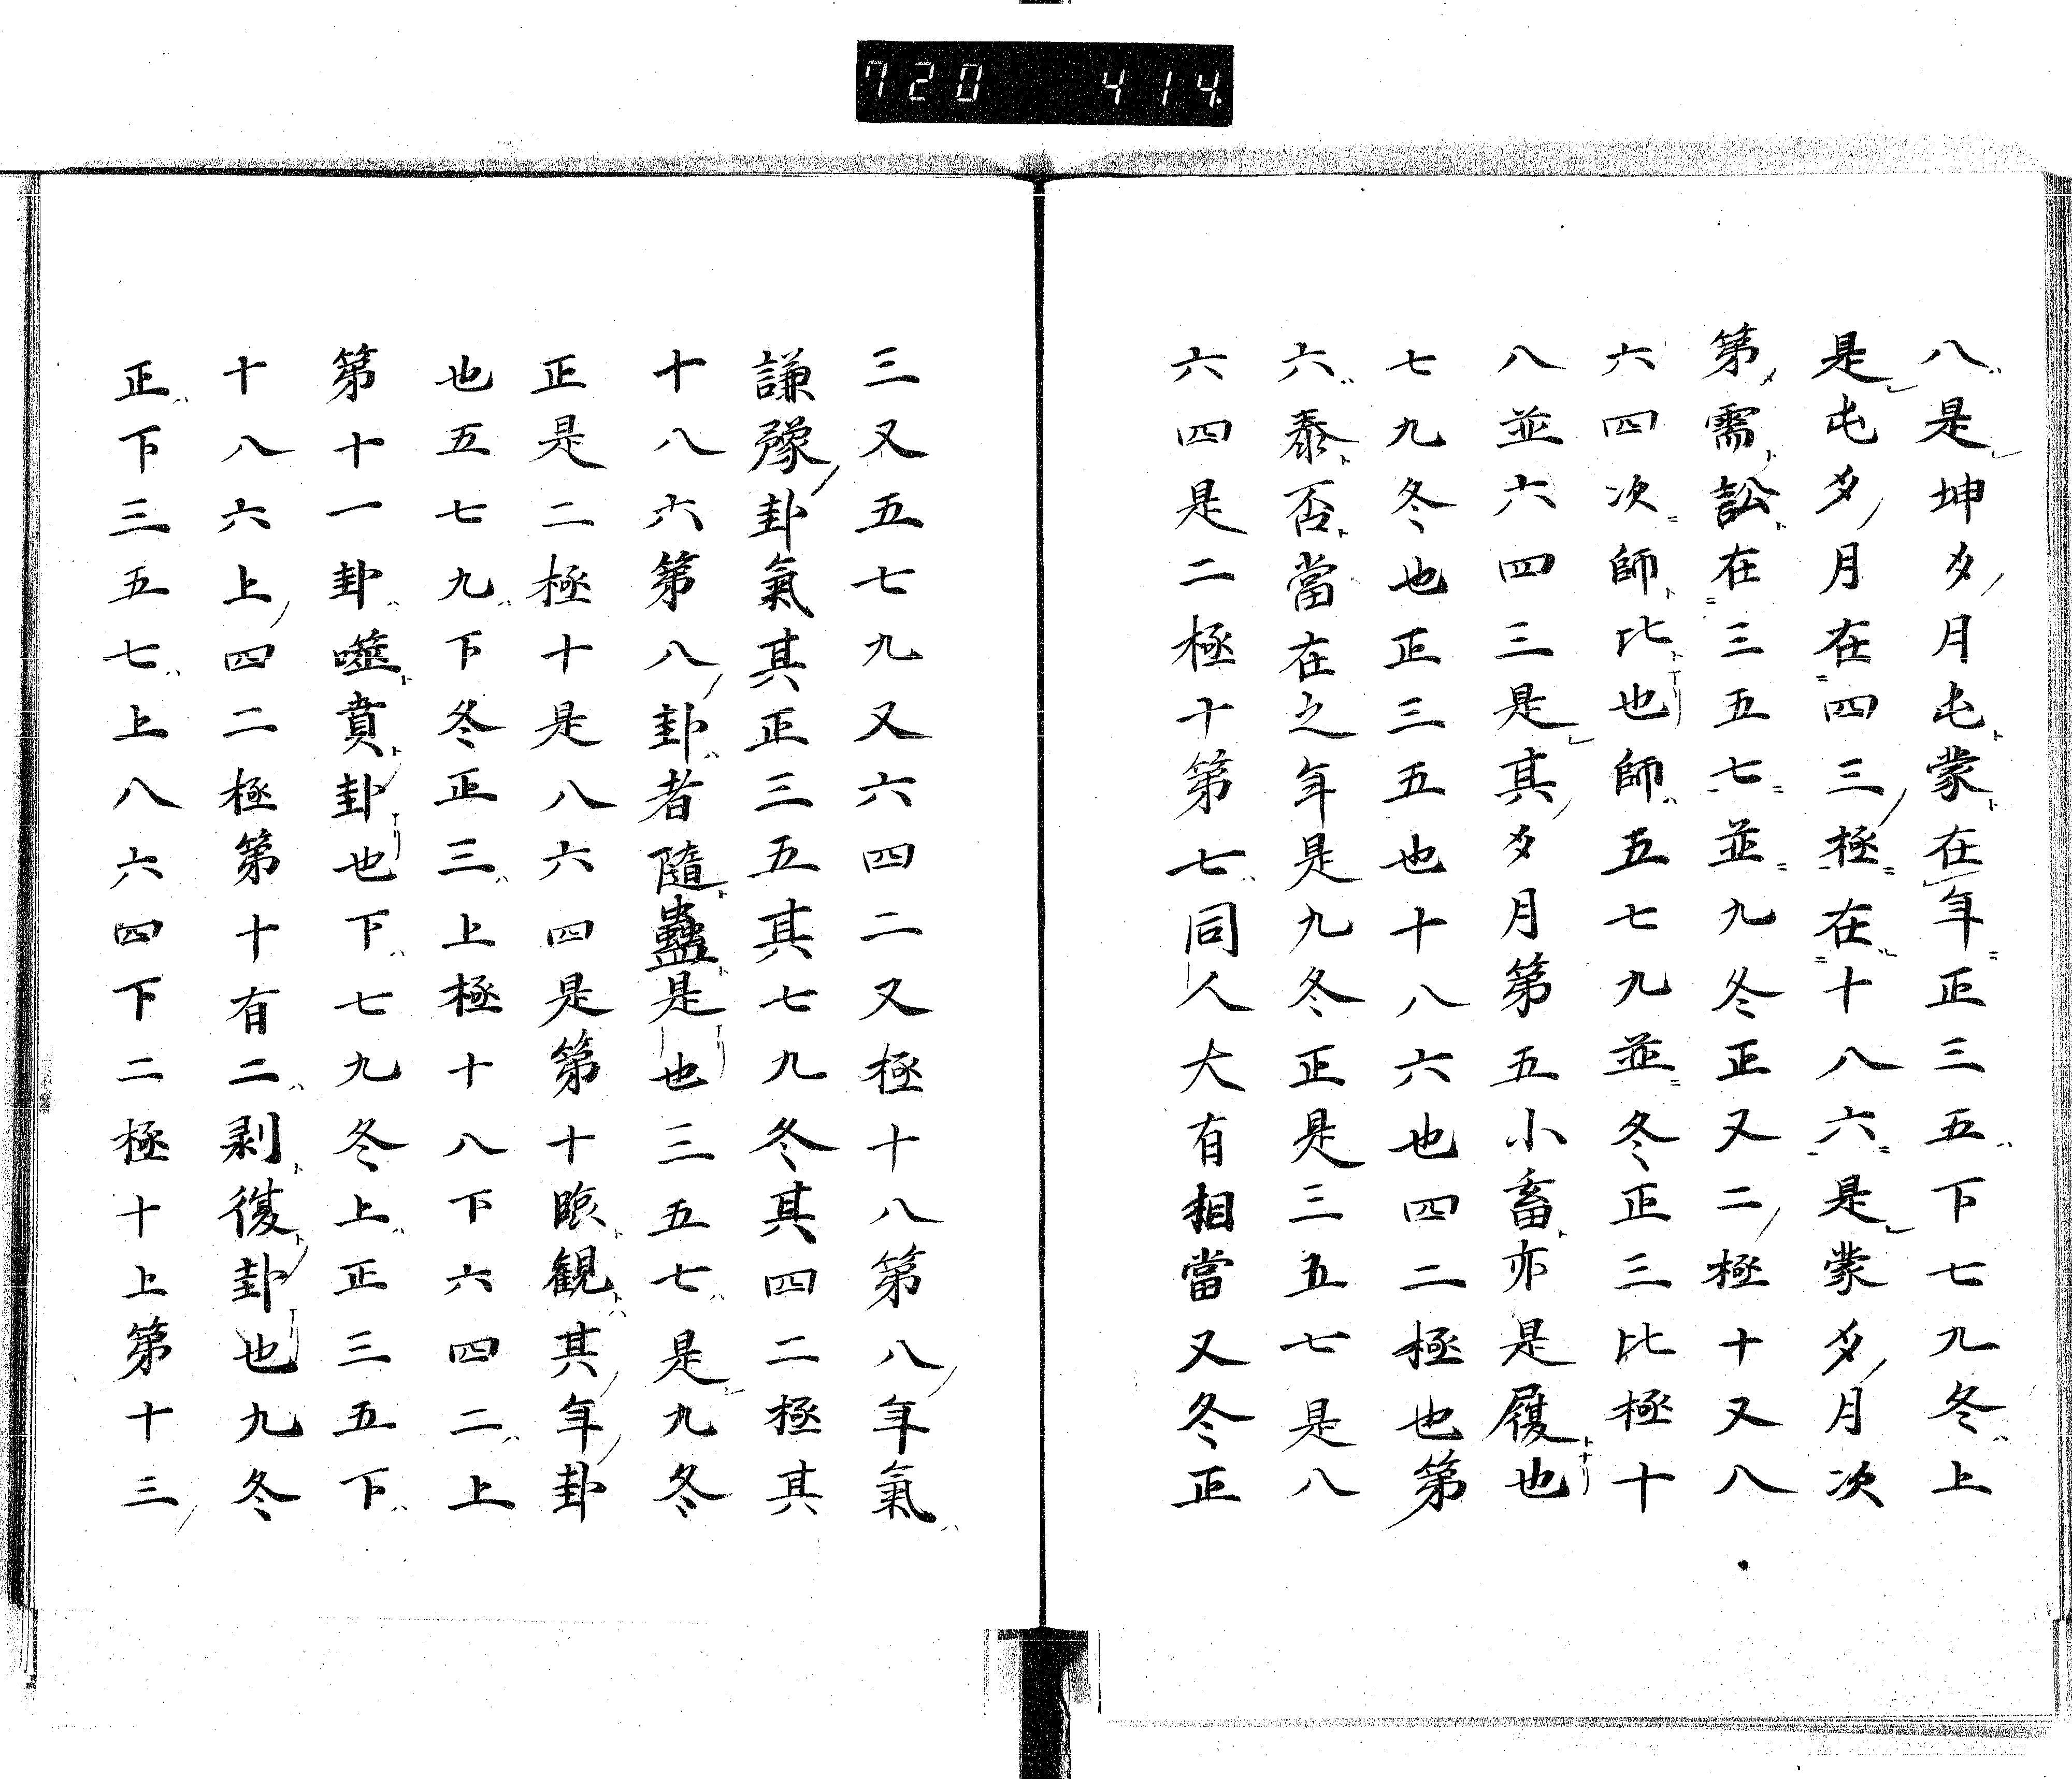 720 414
八是坤夕月屯蒙在年正三五下七九冬上
是屯夕月在四三極在十八六是蒙夕月次
第需訟在三五七並九冬正又二極十又八
六四次師比也師五七九並冬正三比極十
八並六四三是其夕月第五小畜亦是履也
七九冬也正三五也十八六也四二極也第
六泰否當在之年是九冬正是三五七是八
六四是二極十第七同人大有相當又冬正
三又五七九又六四二又極十八第八年氣
謙豫卦氣其正三五其七九冬其四二極其
十八六第八卦者隨蠱是也三五七是九冬
正是二極十是八六四是第十臨観其年卦
也五七九下冬正三上極十八下六四二上
第十一卦噬賁卦也下七九冬上正三五下
十八六上四二極第十有二剥復卦也九冬
正下三五七上八六四下二極十上第十三